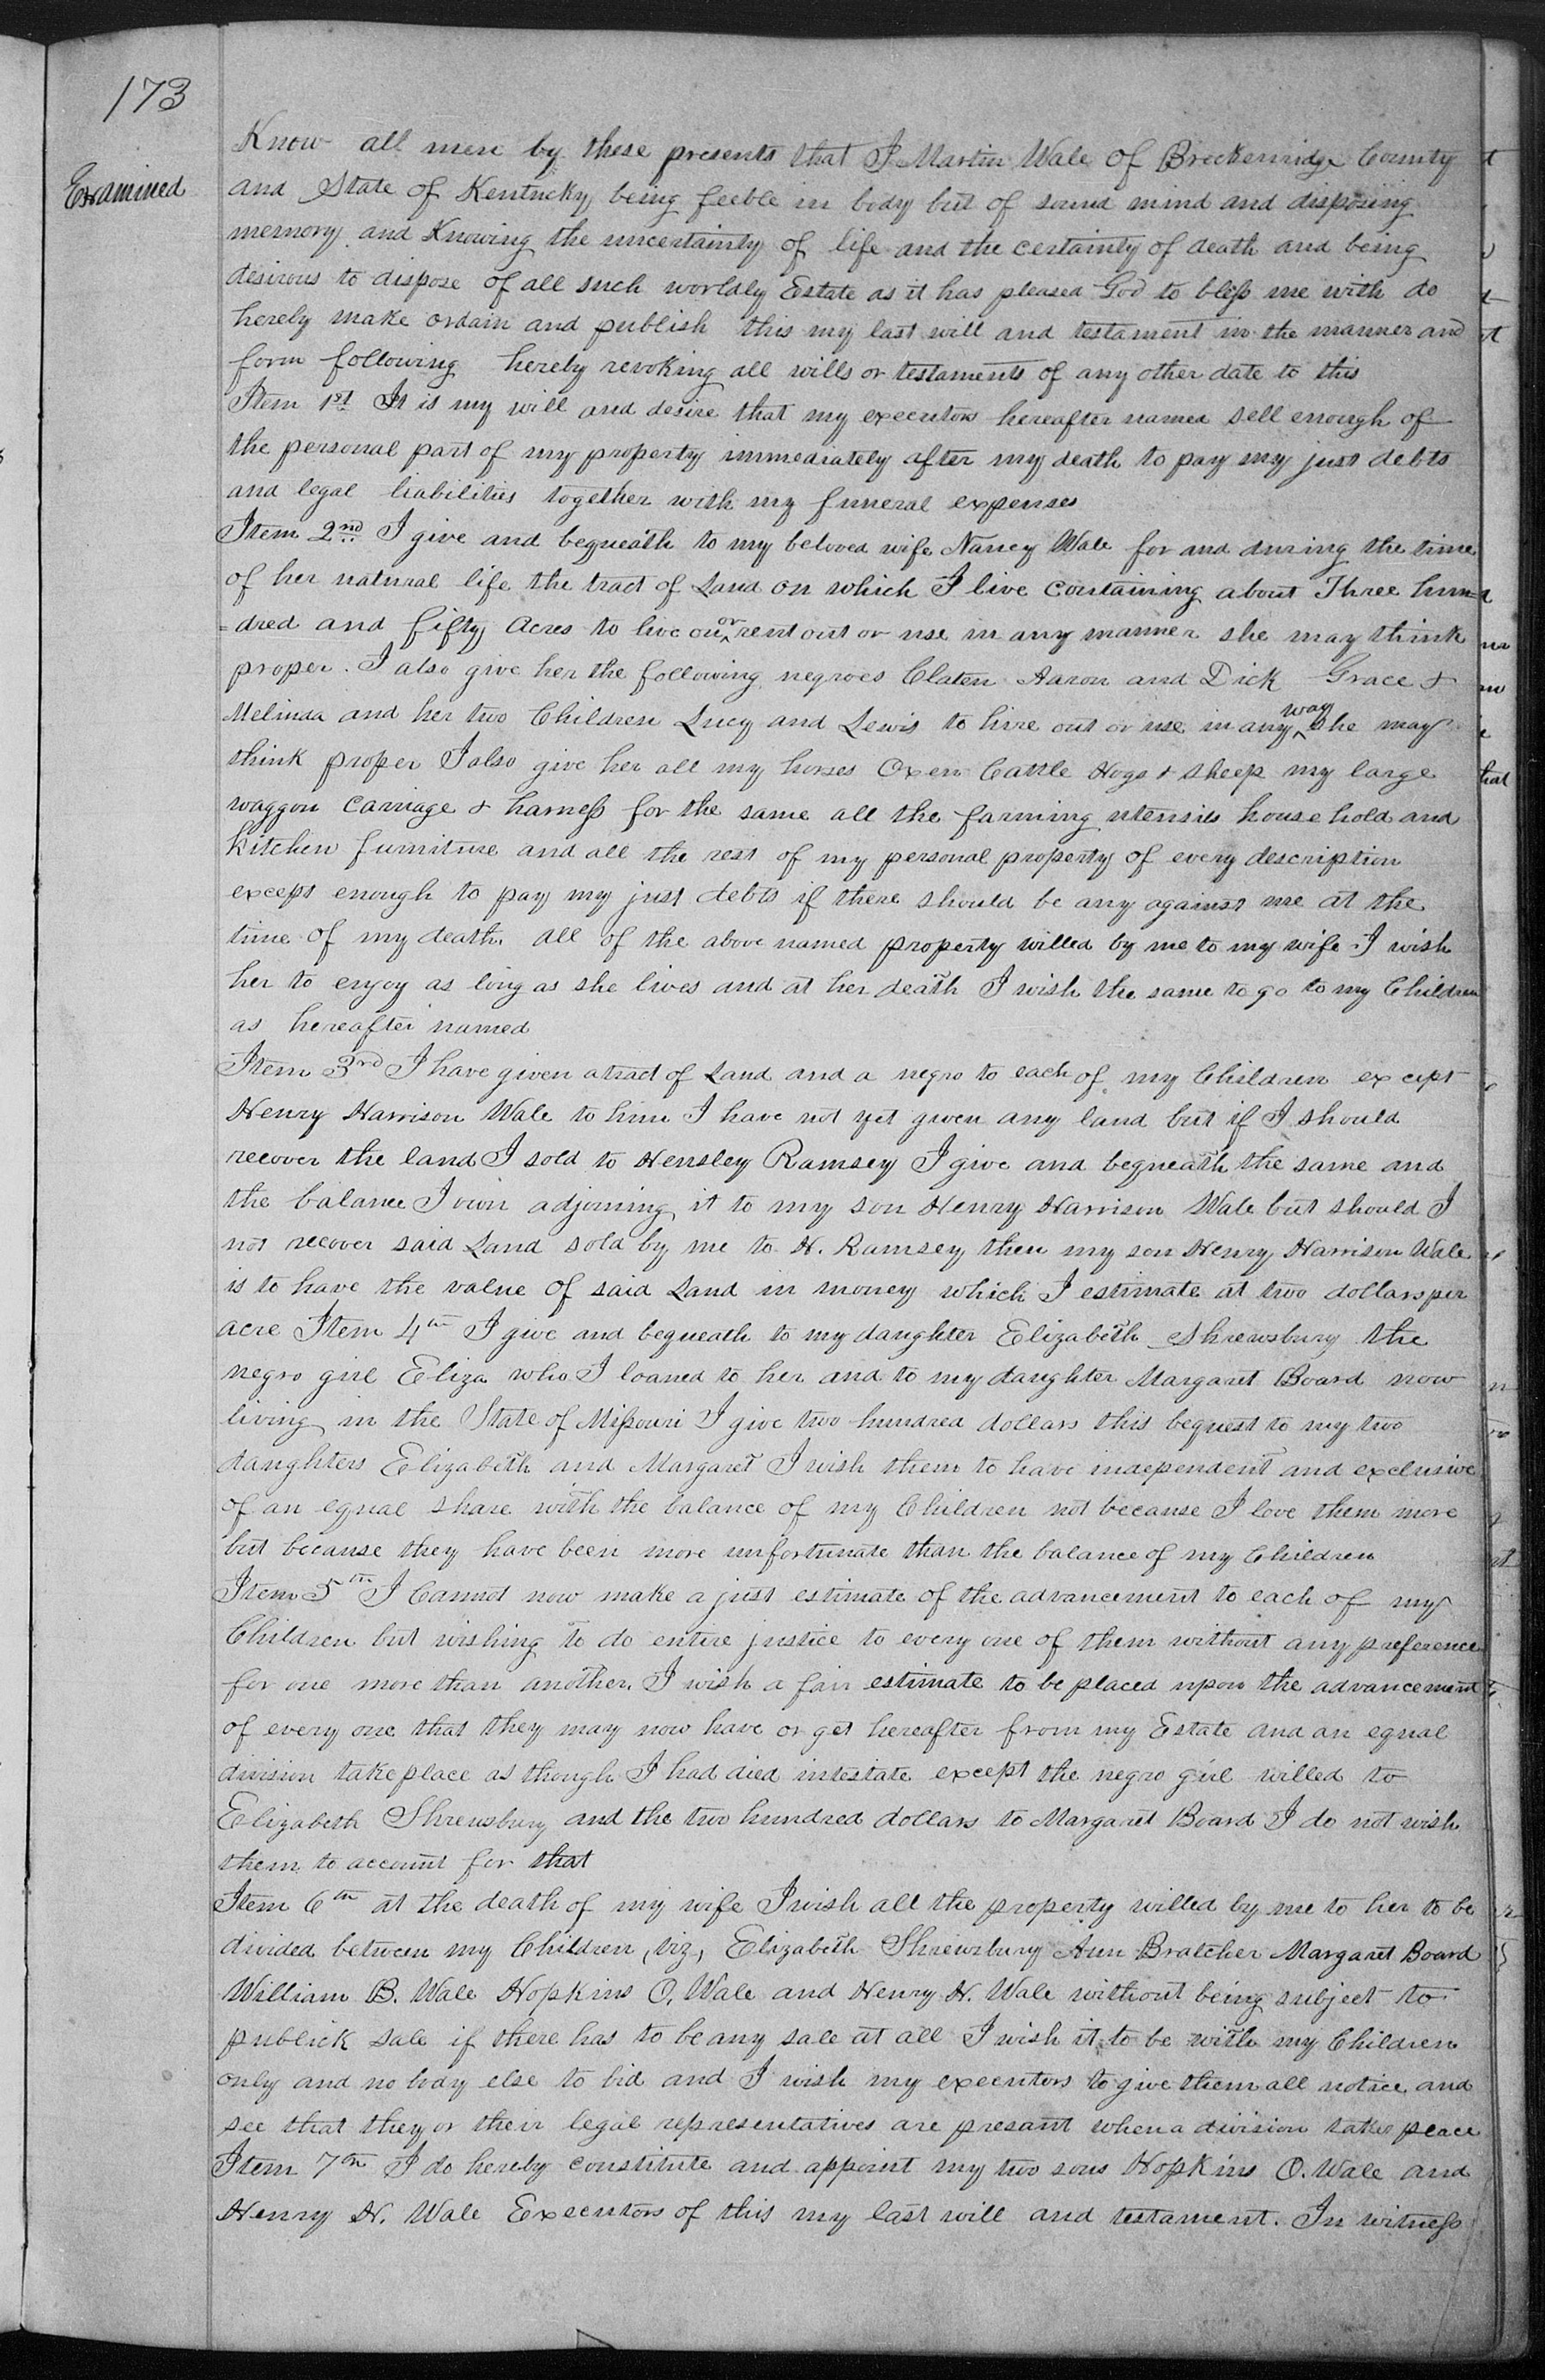 173
Examined
Know all men by these presents that I Martin Wale of Breckenridge County
and State of Kentucky being feeble in body but of sound mind and disposing
memory and Knowing the uncertainty of life and the certainty of death and being
desirous to dispose of all such worldly Estate as it has pleased God to bless me with do
hereby make ordain and publish this my last will and testament in the manner and
form following hereby revoking all wills or testaments of any other date to this
Item 1st It is my will and desire that my executors hereafter named sell enough of
the personal part of my property immediately after my death to pay my just debts
and legal liabilities together with my funeral expenses
Item 2nd I give and bequeath to my beloved wife Nancy Wale for and during the time
of her natural life the tract of Land on which I live containing about Three hun=
=dred and fifty Acres to live on or rent out or use in any manner she may think
proper. I also give her the following negroes Claten Aaron and Dick Grace &
Melinda and her two Children Lucy and Lewis to hire out or use in any way she may
think proper I also give her all my horses Oxen Cattle Hogs & sheep my large
waggon carriage & harness for the same all the farming utensils household and
Kitchen furniture and all the rest of my personal property of every description
except enough to pay my just debts if there should be any against me at the
time of my death. all of the above named property willed by me to my wife I wish
her to enjoy as long as she lives and at her death I wish the same to go to my Children
as hereafter named
Item 3rd I have given a tract of Land and a negro to each of my Children except
Henry Harrison Wale to him I have not yet given any land but if I should
recover the land I sold to Hensley Ramsey I give and bequeath the same and
the balance I own adjoining it to my son Henry Harrison Wale but should I
not recover said Land sold by me to H. Ramsey then my son Henry Harrison Wale
is to have the value of said Land in money which I estimate at two dollars per
acre Item 4th I give and bequeath to my daughter Elizabeth Shrewsbury the
negro girl Eliza who I loaned to her and to my daughter Margaret Board now
living in the State of Missouri I give two hundred dollars this bequest to my two
daughters Elizabeth and Margaret I wish them to have independent and exclusive
of an equal share with the balance of my Children not because I love them more
but because they have been more unfortunate than the balance of my Children
Item 5th I Cannot now make a just estimate of the advancement to each of my
Children but wishing to do entire justice to every one of them without any preference
for one more than another I wish a fair estimate to be placed upon the advancement
of every one that they may now have or get hereafter from my Estate and an equal
division take place as though I had died intestate except the negro girl willed to
Elizabeth Shrewsbury and the two hundred dollars to Margaret Board I do not wish
them to account for that
Item 6th at the death of my wife I wish all the property willed by me to her to be
divided between my Children, viz, Elizabeth Shrewsbury Ann Bratcher Margaret Board
William B. Wale Hopkins O. Wale and Henry H. Wale without being subject to
publick sale if there has to be any sale at all I wish it to be with my Children
only and no body else to bid and I wish my executors to give them all notice and
see that they or their legal representatives are present when a division takes peace
Item 7th I do hereby constitute and appoint my two sons Hopkins O. Wale and
Henry H. Wale Executors of this my last will and testament. In witness